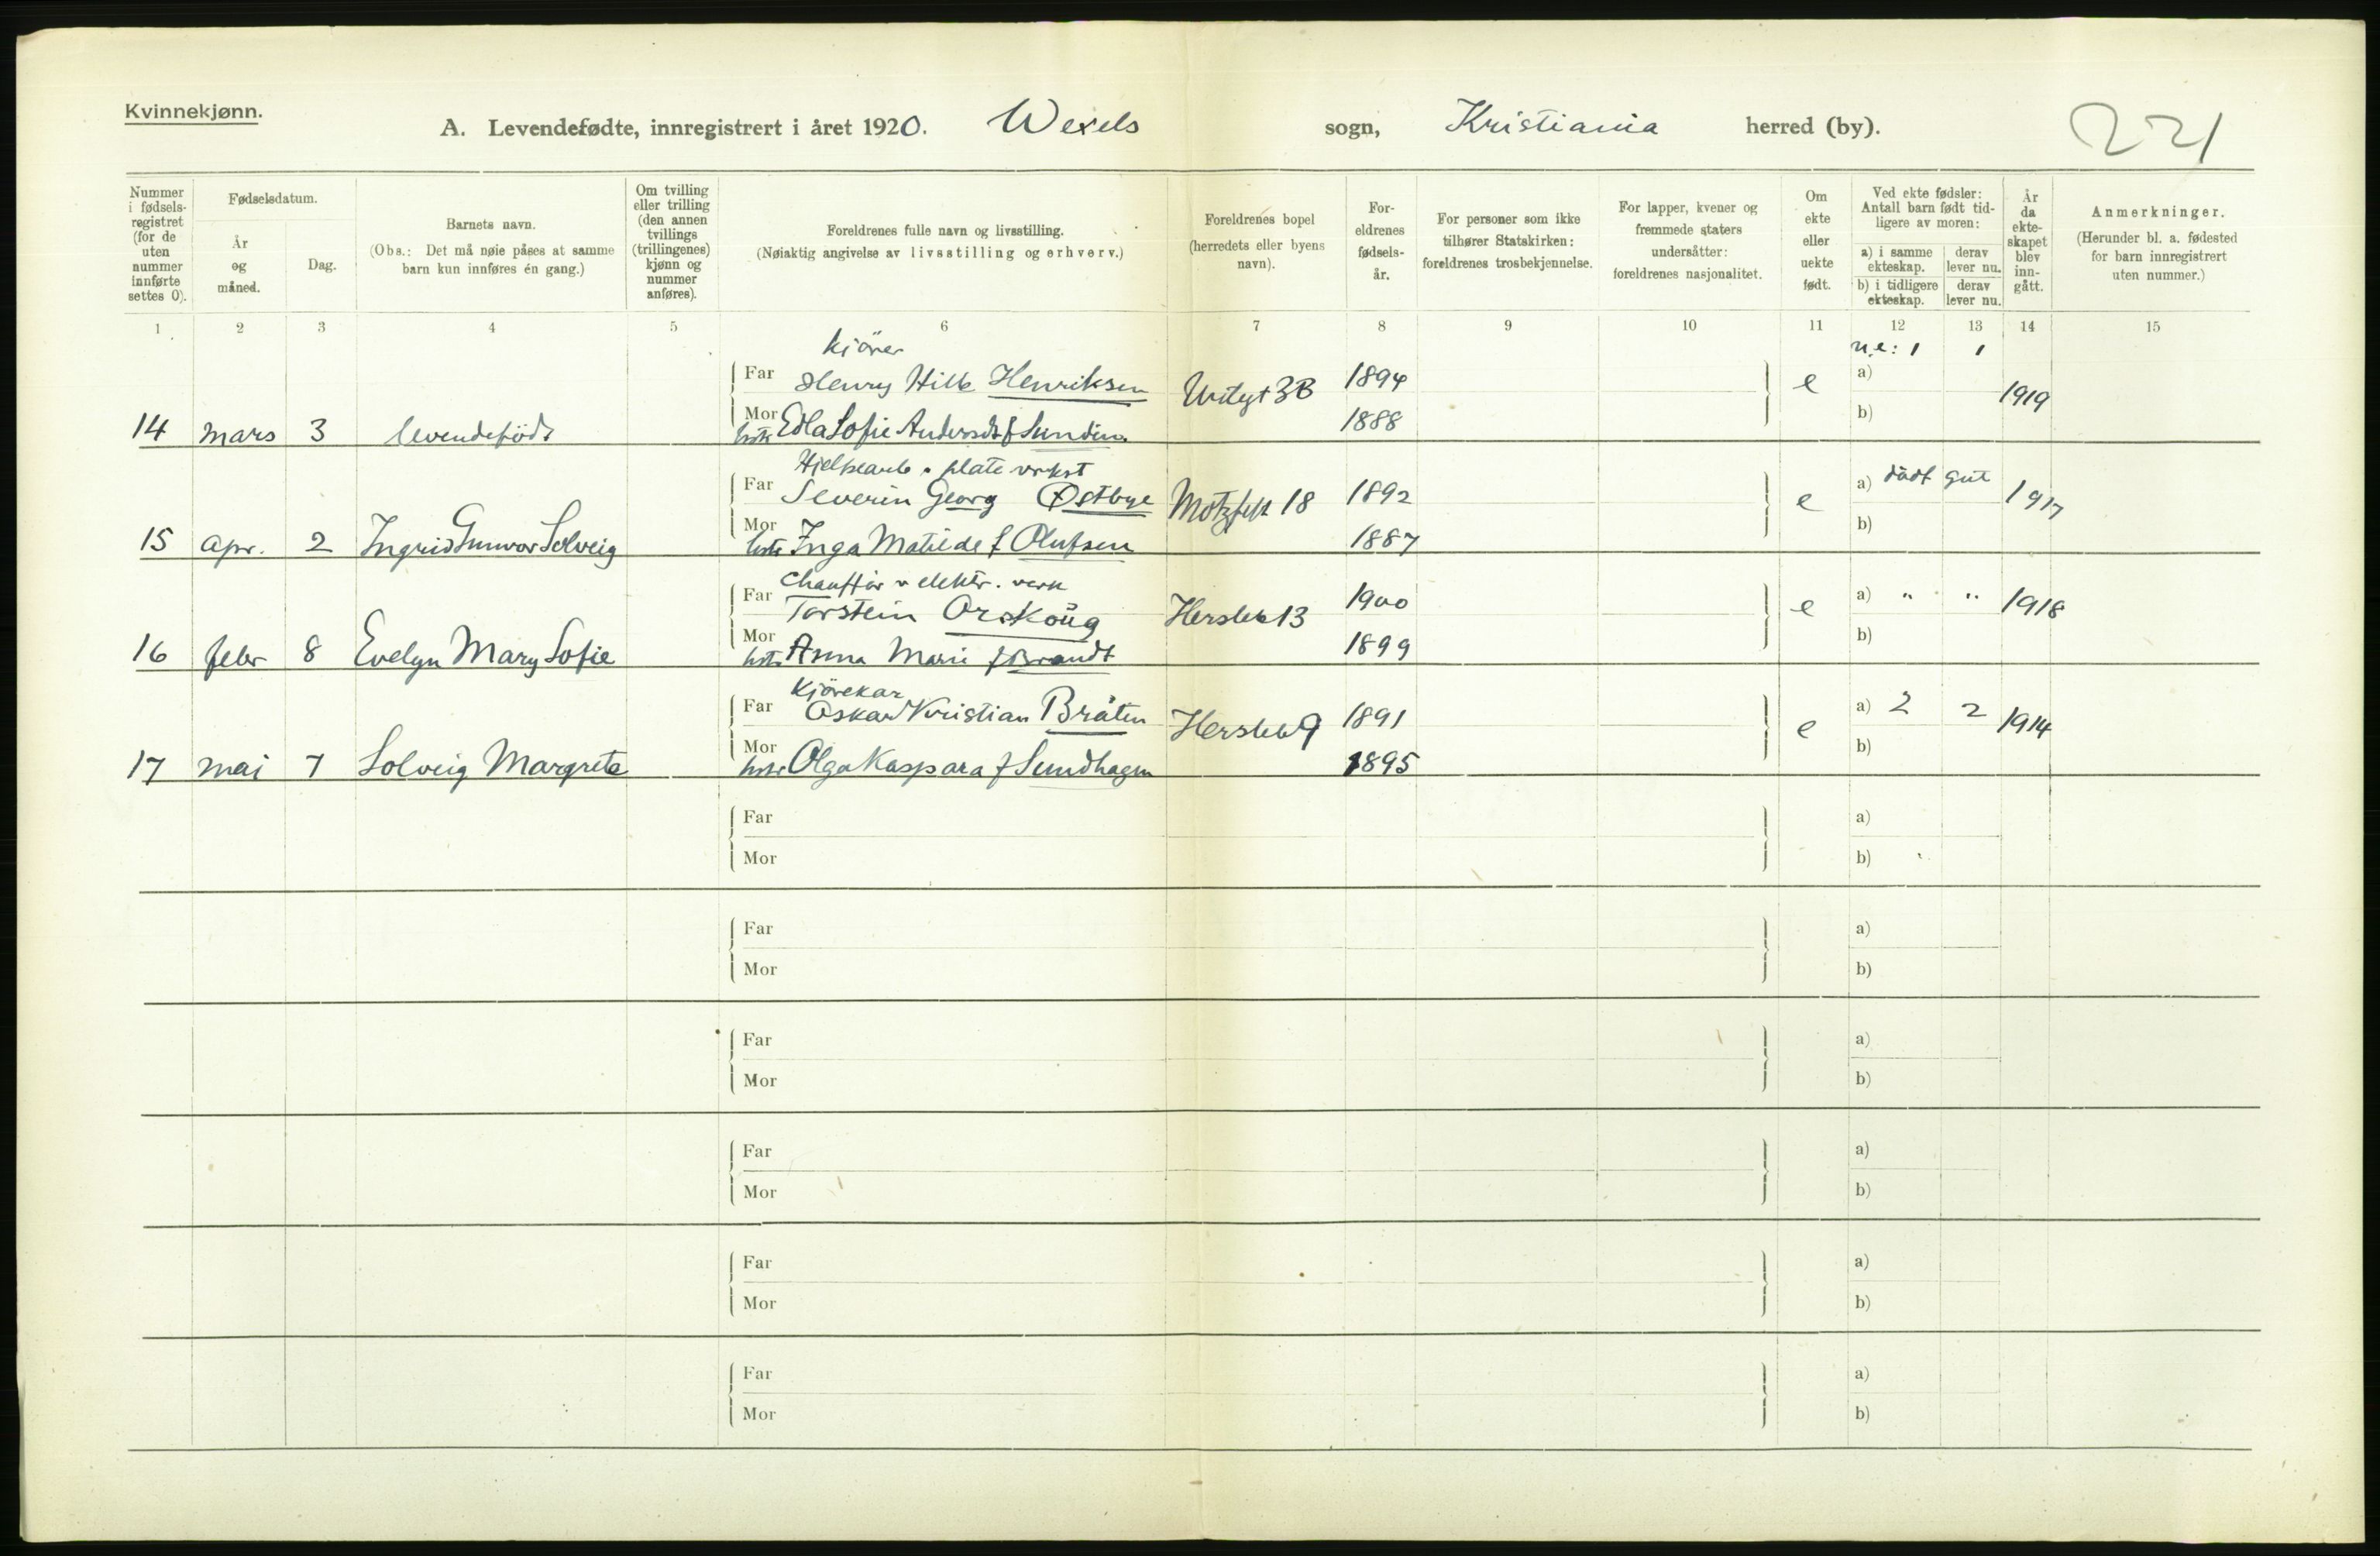 Kvinnekjønn.
A. Levendefødte, innregistrert i året 1920. Wexels sogn, Kristiania herred (by). 221
Nummer i fødsels-registret (for de uten nummer innførte settes 0).
Fødselsdatum.
År og måned.
Dag.
Barnets navn.
(Obs.: Det må nøie påses at samme barn kun innføres én gang.)
Om tvilling eller trilling (den annen tvillings (trillingenes) kjønn og nummer anføres).
Foreldrenes fulle navn og livsstilling.
(Nøiaktig angivelse av livsstilling og erhverv.)
Foreldrenes bopel (herredets eller byens navn).
For-eldrenes fødsels-år.
For personer som ikke tilhører Statskirken: foreldrenes trosbekjennelse.
For lapper, kvener og fremmede staters undersåtter: foreldrenes nasjonalitet.
Om ekte eller uekte født.
Ved ekte fødsler: Antall barn født tid-ligere av moren:
a) i samme ekteskap. derav lever nu.
b) i tidligere ekteskap. derav lever nu.
År da ekte-skapet blev inn-gått.
Anmerkninger.
(Herunder bl. a. fødested for barn innregistrert uten nummer.)
1 2 3 4 5 6 7 8 9 10 11 12 13 14 15
kjører u.e: 1 1
Far Henry Henriksen Urtegt 3B 1894 e a) 1919
14 mars 3 levendefødt Mor Edla Sofie f Sundin 1888 b)
Hjelpearb. plate
Far Severin Georg Østbye Motzfelt 18 1892 e a) dødf gut 1917
15 apr. 2 Ingrid Gunvor Solveig Mor Inga Matilde f Olufsen 1887 b)
Chauffør v elektr. verk
Far Torstein Orskoug Hersleb 13 1900 e a) " " 1918
16 febr 8 Evelyn Mary Sofie Mor Anna Marie f Brandt 1899 b)
Kjørekar
Far Oskar Kristian Bråten Hersleb 9 1891 e a) 2 2 1914
17 mai 7 Solveig Margrete Mor Olga Kaspara f Sundhagen 1895 b)
Far a)
Mor b)
Far a)
Mor b)
Far a)
Mor b)
Far a)
Mor b)
Far a)
Mor b)
Far a)
Mor b)